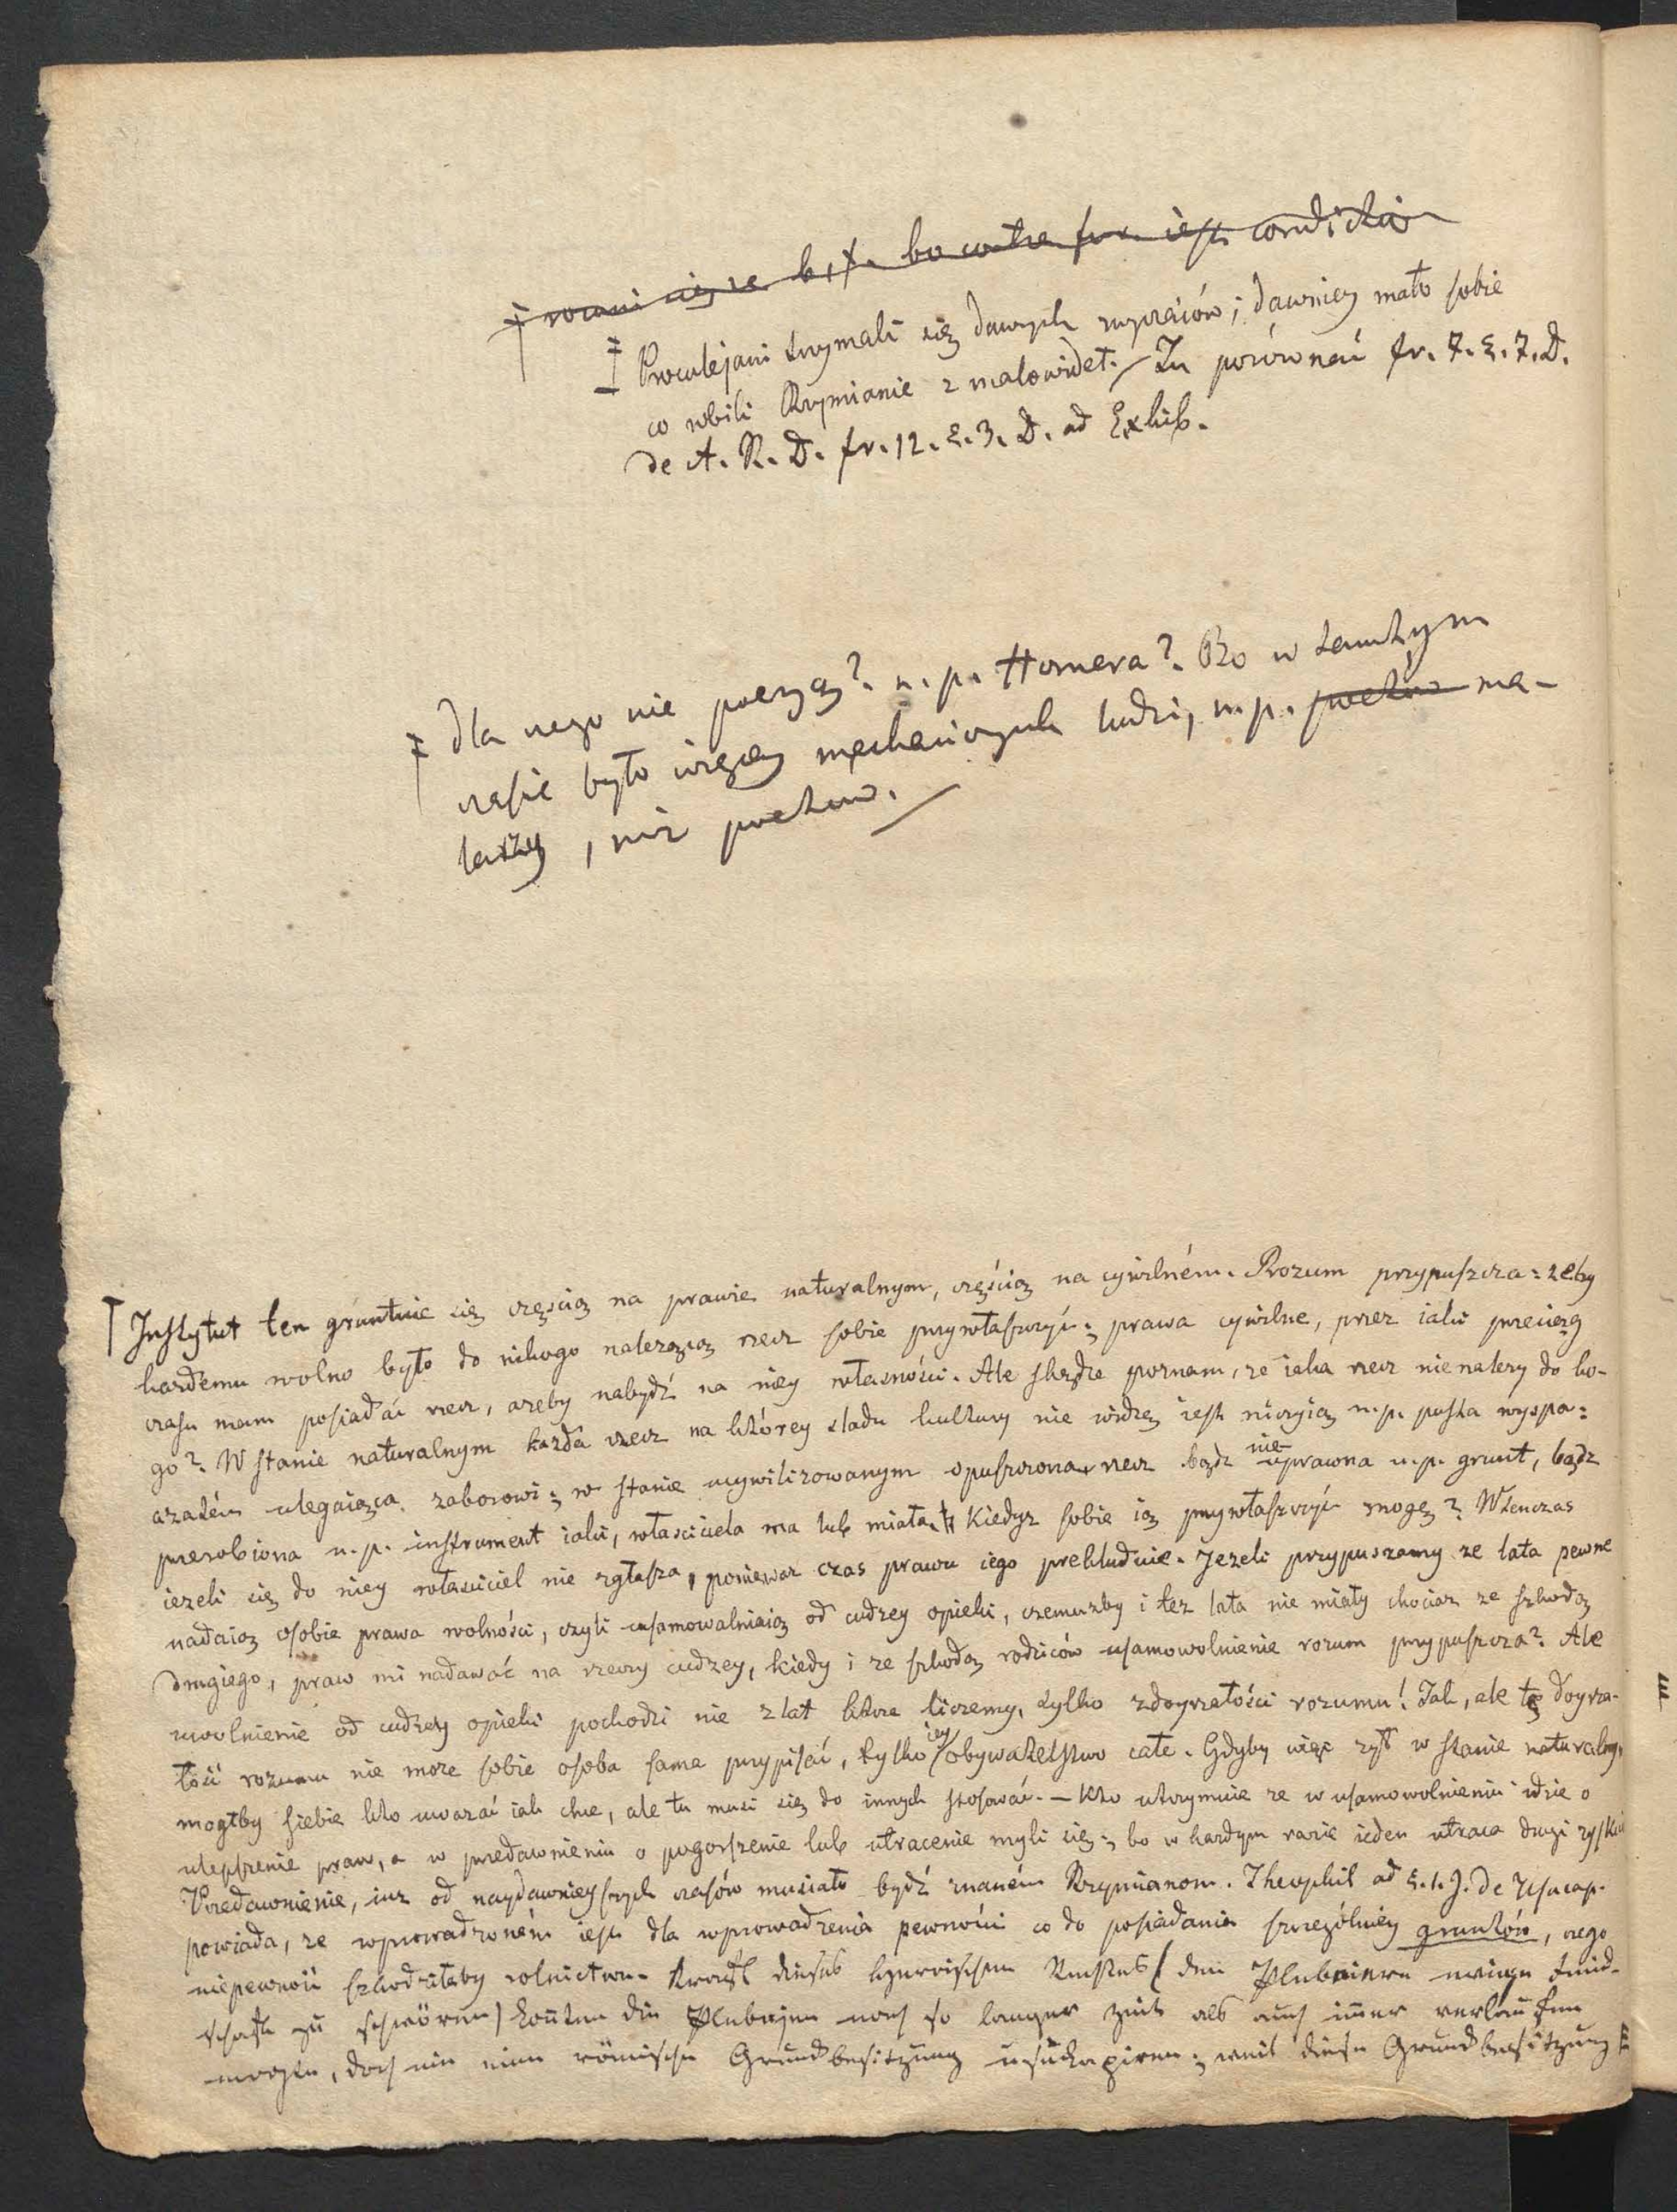 bo contra fur. iest condictio
‡ Proculejani trzymali się dawnych wyrazów; dawniey mało sobie
co robili Rzymianie z malowideł. Tu porównać fr. 7. §. 7. D.
de A. R. D. fr. 12. §. 3. D. ad Exhib.
‡ dla czego nie poezyą? n. p. Homera? Bo w tamtym
czasie było więcey mechanicznych ludzi, n. p. poetów ma-
larzy, niż poetów.
Instytut ten gruntuie się częścią na prawie naturalnym, częścią na cywilném. Rozum przypuszcza: żeby
każdemu wolno było do nikogo należącą rzecz sobie przywłaszczyć; prawa cywilne, przez iaki przeciąg
czasu mam posiadać rzecz, ażeby nabydź na niey własności. Ale zkądże poznam, że iaka rzecz nienależy do ko-
go? W stanie naturalnym każda rzecz na którey śladu kultury nie widzę iest niczyią n. p. pusta wyspa:
a zatém ulegaiąca zaborowi; w stanie ucywilizowanym opuszczona rzecz bądź nie uprawna n. p. grunt, bądź
przerobiona n. p. instrument iaki, właściciela ma lub miała. Kiedyż sobie ią przywłaszczyć mogę? Wtenczas
ieżeli się do niey właściciel nie zgłasza, ponieważ czas prawu iego prekluduie. Jeżeli przypuszczamy że lata pewne
nadaią osobie prawa wolności, czyli usamowalniaią od cudzey opieki, czemużby i też lata nie miały chociaż ze szkodą
drugiego, praw mi nadawać na rzeczy cudzey, kiedy i ze szkodą rodziców usamowolnienie rozum przypuszcza? Ale
uwolnienie od cudzey opieki pochodzi nie z lat które liczemy, tylko z doyrzałości rozumu! Tak, ale tę doyrza-
łość rozumu nie może sobie osoba sama przypisać, tylko iey obywatelstwo całe. Gdyby więc żył w stanie naturalnym
mogłby siebie kto uważać iak chce, ale tu musi się do innych stosować. — Kto utrzymuie że w usamowolnieniu idzie o
ulepszenie praw, a w przedawnieniu o pogorszenie lub utracenie myli się; bo w każdym razie ieden utraca drugi zyskuie
Przedawnienie, iuż od naydawnieyszych czasów musiało bydź znaném Rzymianom. Theophil ad §. 1. J. de Usucap.
powiada, że wprowadzoném iest dla wprowadzenia pewności co do posiadania szczególniey gruntów, czego
niepewność szkodziłaby rolnictwu. Kraft dieses tyrannischen (den Plebeiern ewige Feind-
schaft zu schwören) konnten die Plebejer noch so langer Zeit als auch immer verlaufen
mochte, doch nie eine römische Grundbesitzung usukapiren; weil diese Grundbesitzung